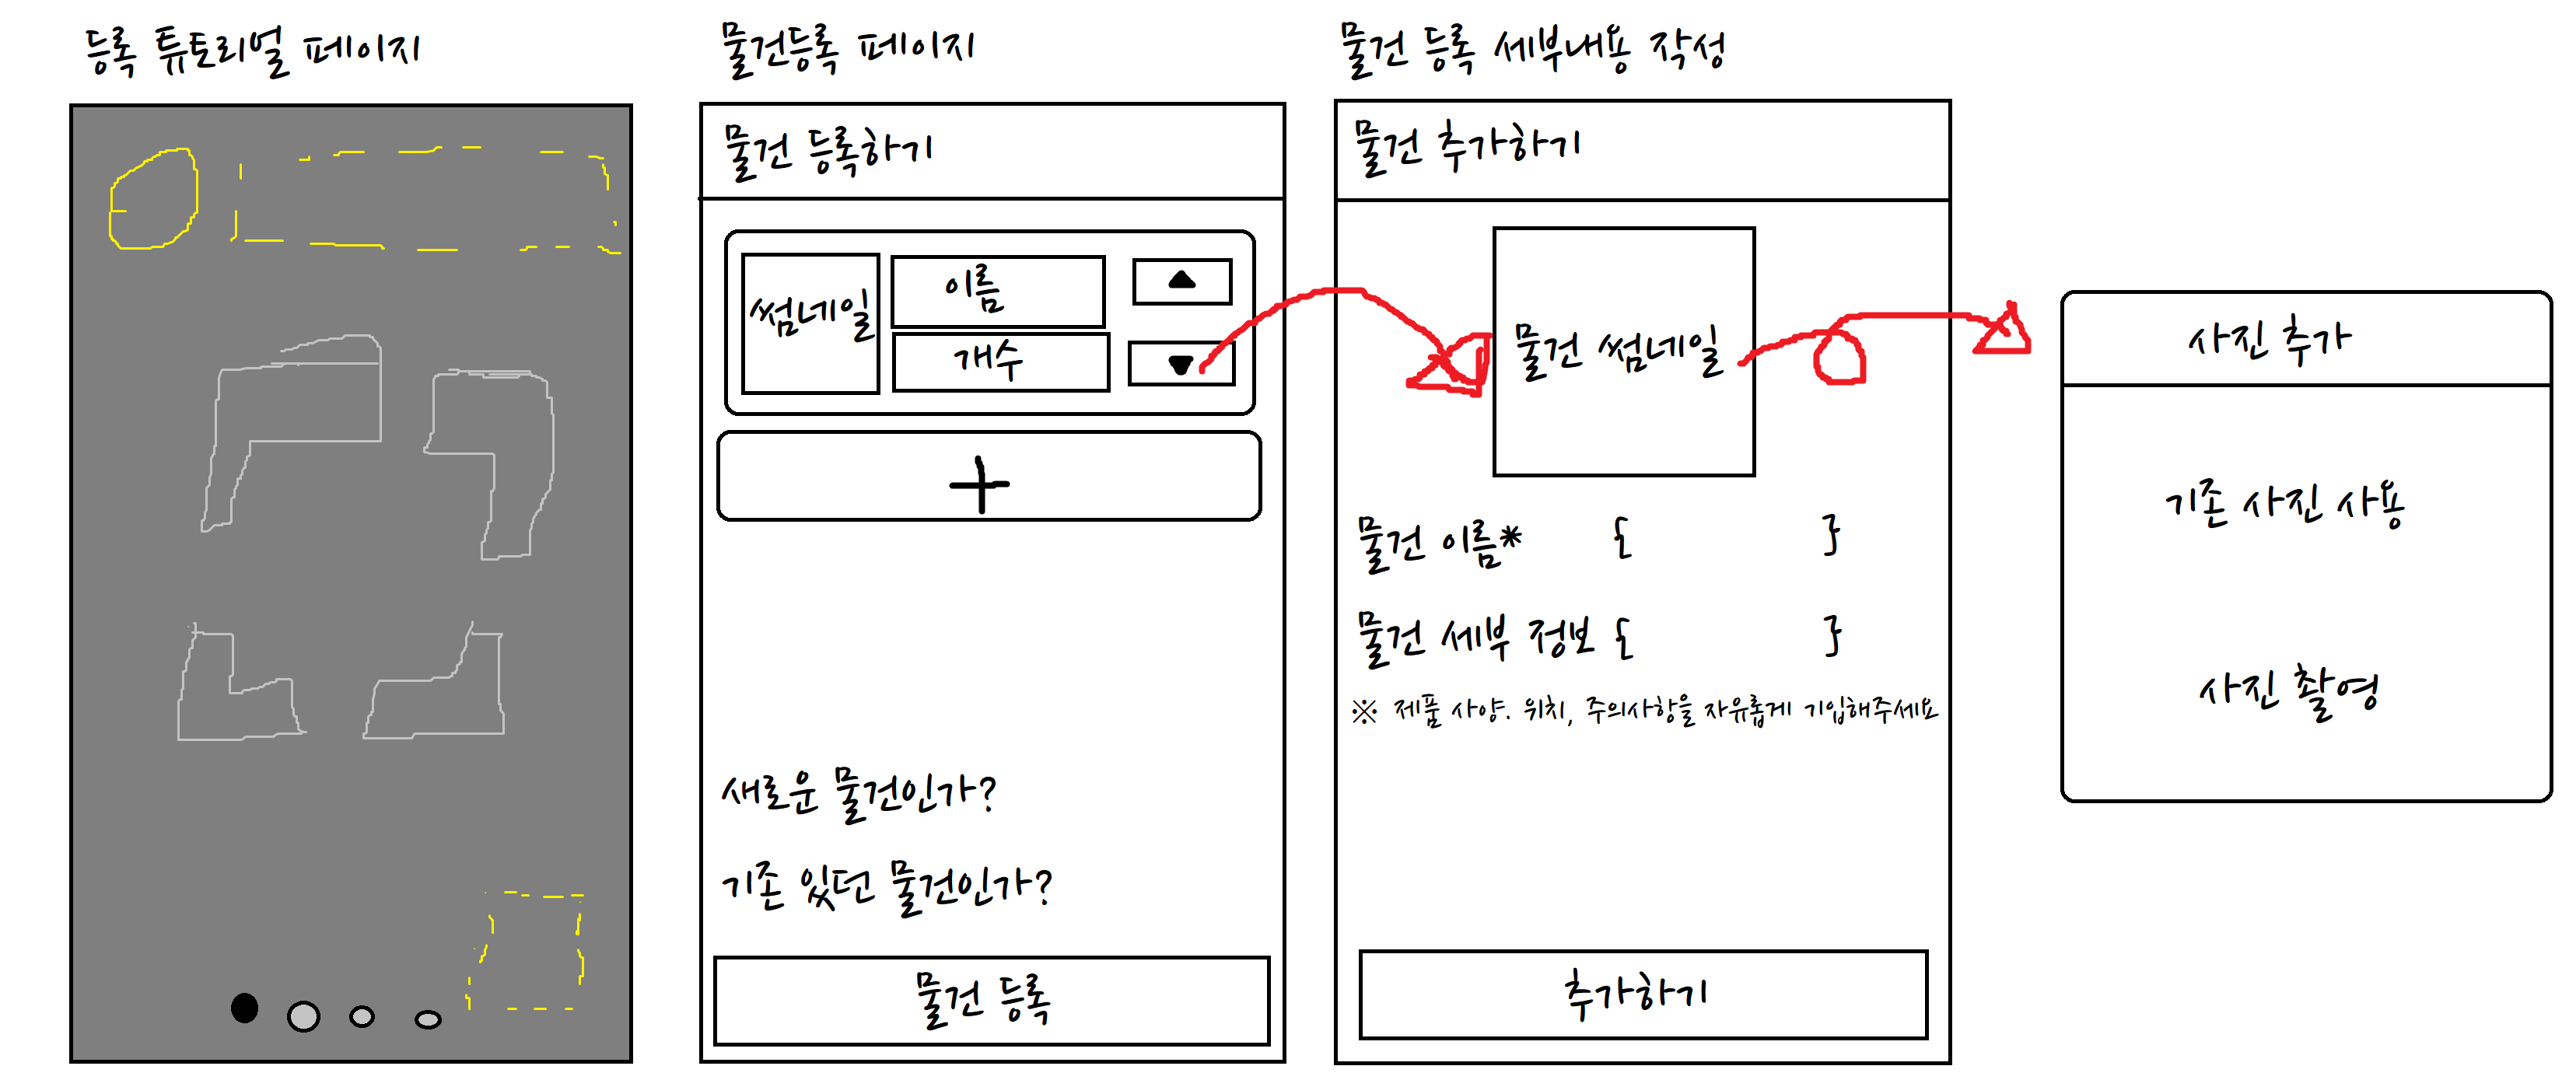 등록 튜토리얼 페이지
물건등록 페이지
물건 등록하기
썸네일
이름
개수
새로운 물건인가?
기존 있던 물건인가?
물건 등록
물건 등록 세부내용 작성
물건 추가하기
물건 썸네일
물건 이름* { }
물건 세부 정보 { }
※ 제품 사양. 위치, 주의사항을 자유롭게 기입해주세요
추가하기
사진 추가
기존 사진 사용
사진 촬영